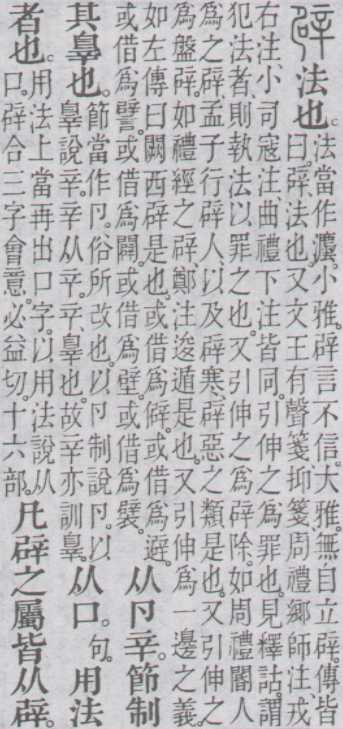 辟法也。
法當作灋。小雅。辟言不信。大雅。無自立辟。傳皆
曰。辟、法也。又文王有聲箋、抑箋、周禮鄉師注、戎
右注、小司寇注、曲禮下注皆同。引伸之爲罪也。見釋詁。謂
犯法者、則執法以罪之也。又引伸之爲辟除。如周禮閽人
爲之辟、孟子行辟人、以及辟寒、辟惡之類是也。又引伸之
爲盤辟。如禮經之辟、鄭注逡遁是也。又引伸爲一邊之義。
如左傳曰闕西辟是也。或借爲僻。或借爲避。
或借爲譬。或借爲闢。或借爲壁。或借爲襞。
从卩辛。節制
其辠也。
節當作卩。俗所改也。以卩制說卩。以
辠說辛。辛从䇂。䇂、辠也。故辛亦訓辠。
从口。句。用法
者也。
用法上當再出口字。以用法說从
口。辟合三字會意。必益切。十六部。
凡辟之屬皆从辟。